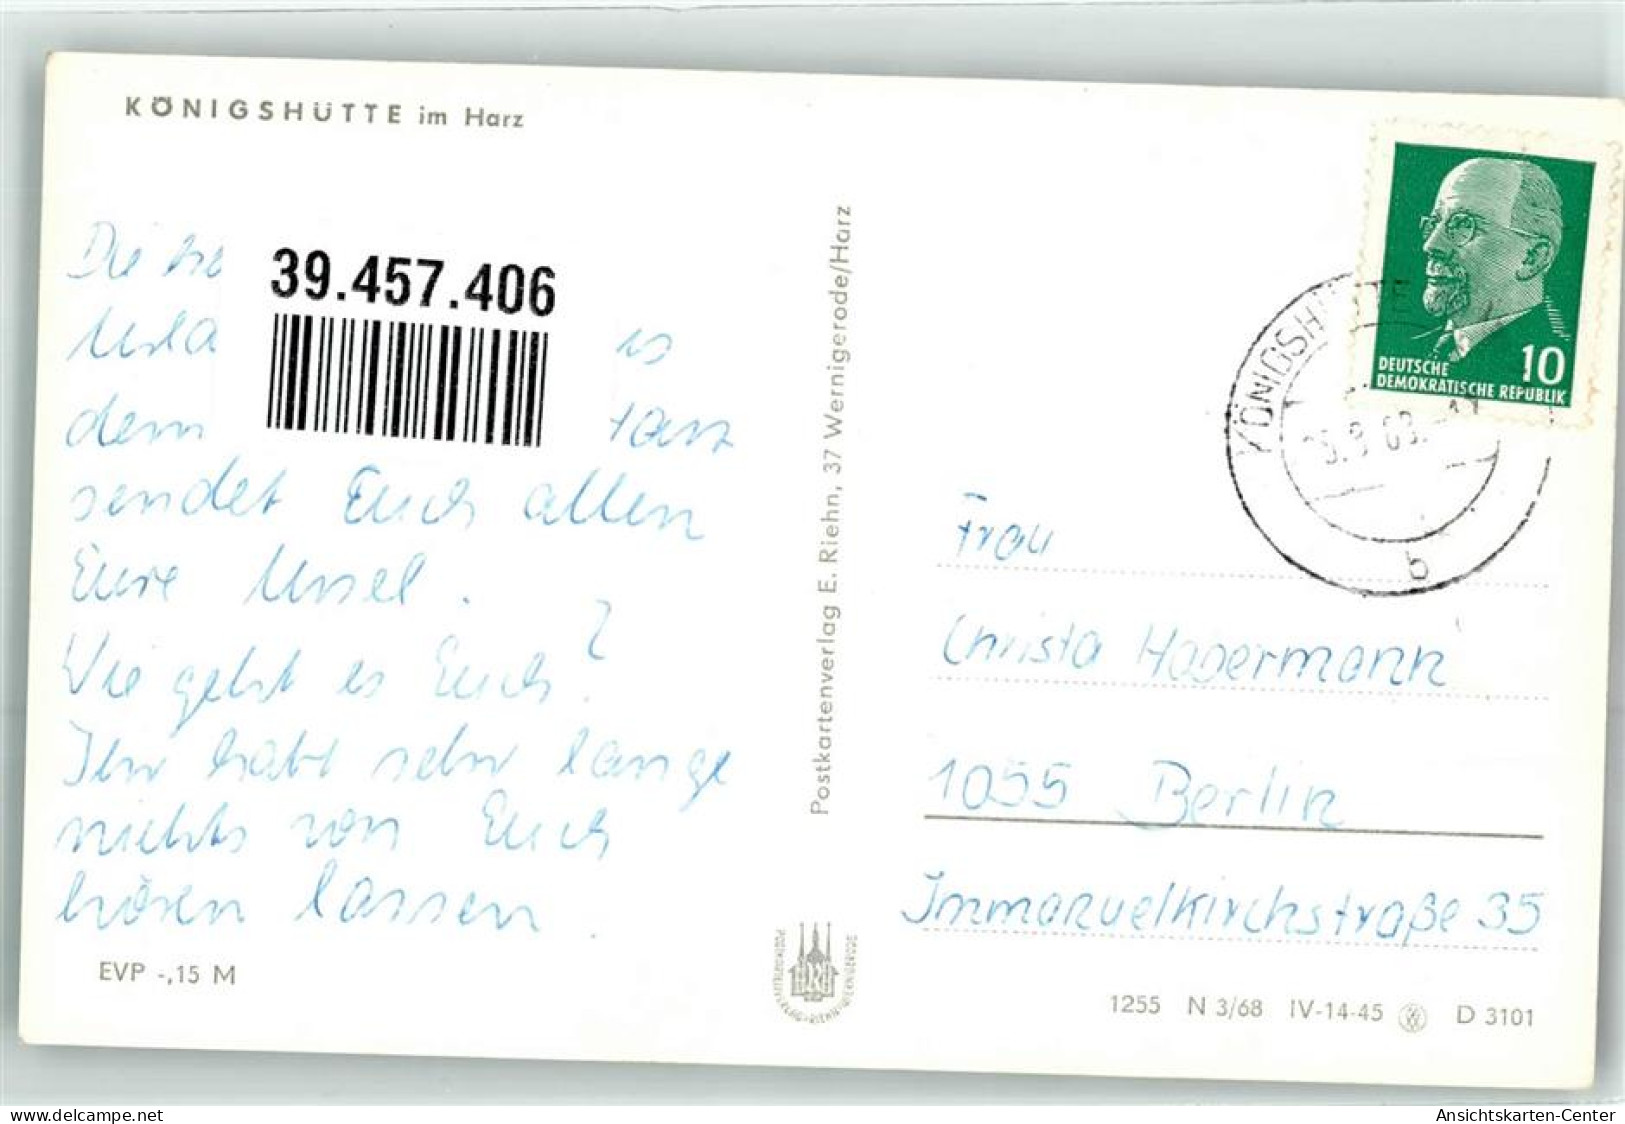 KÖNIGSHÜTTE im Harz
39.457.406
dem
sendet Euch allen
Eure Ursel.
Wie geht es Euch?
Ihr habt sehr lange
nichts von Euch
hören lassen.
EVP -,15 M
Postkartenverlag E. Riehn, 37 Wernigerode/Harz
DEUTSCHE
DEMOKRATISCHE REPUBLIK
10
KÖNIGSHÜTTE
b
Frau
Christa Habermann
1055 Berlin
Immanuelkirchstraße 35
1255 N 3/68 IV-14-45 D 3101
delcampe.net
Ansichtskarten-Center